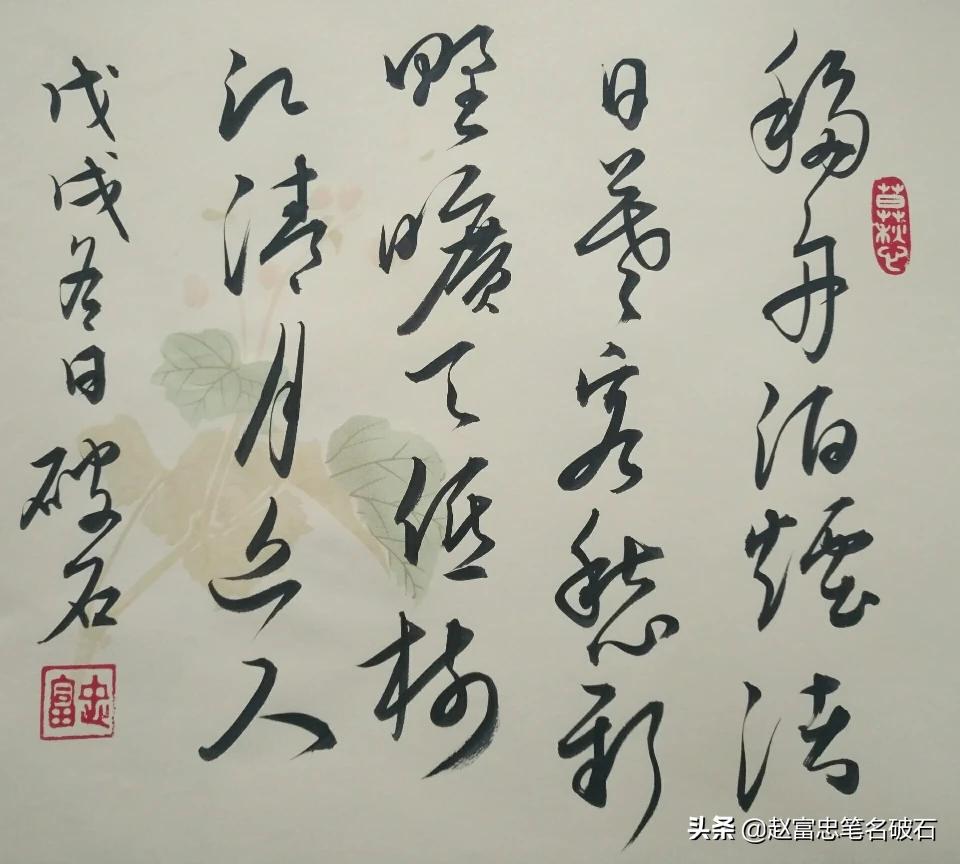 移舟泊煙渚
日暮客愁新
野曠天低樹
江清月近人
戊戌冬日破石
富忠
头条 @赵富忠笔名破石